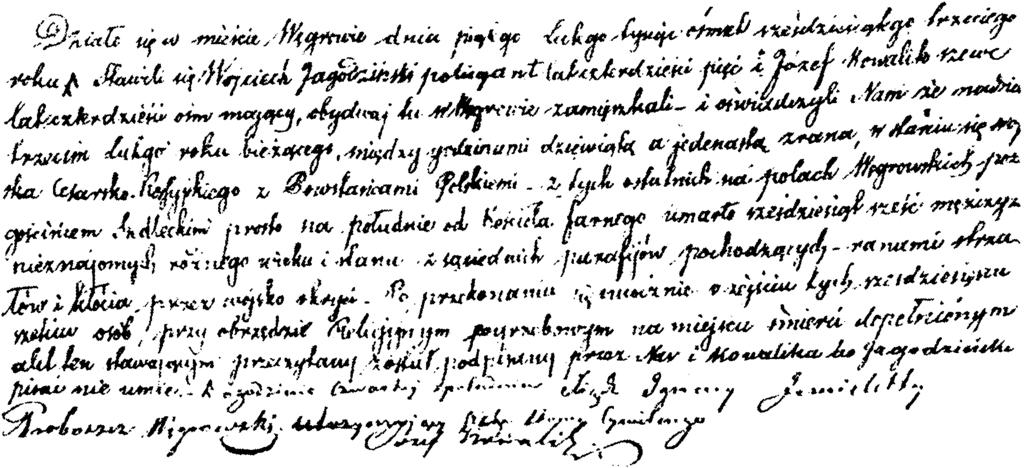 Działo się w mieście Węgrowie dnia piątego Lutego tysiąc ośmset sześćdziesiątego trzeciego
roku Stawili się Wojciech Jagodziński policyant lat czterdzieści pięć i Józef Kowalik szewc
lat czterdzieści ośm mający, obydwaj tu w Węgrowie zamięszkali – i oświadczyli Nam że na dniu
trzecim Lutego roku bieżącego, między godzinami dziewiątą a jedenastą zrana, w starciu się woj
ska Cesarsko-Rosyjskiego z Powstańcami Polskiemi – z tych ostatnich na polach Węgrowskich prz
gościńcem Siedleckim prosto na południe od Kościoła farnego umarło sześćdziesiąt sześć mężczyzn
nieznajomych różnego wieku i stanu z sąsiednich parafijów pochodzących – ranami strza
łów i kłócia przez wojsko okryci – Po przekonaniu się naocznie o zejściu tych sześćdziesięciu
sześciu osób, przy obrzędzie Religijnym pogrzebowym na miejscu śmierci dopełnionym
akt ten stawającym przeczytany został podpisany przez Nas i Kowalika bo Jagodziński
pisać nie umie. o godzinie czwartej z południa Xiądz Ignacy
Proboszcz Węgrowski utrzymujący Akta Stanu Cywilnego
Józef Kowalik